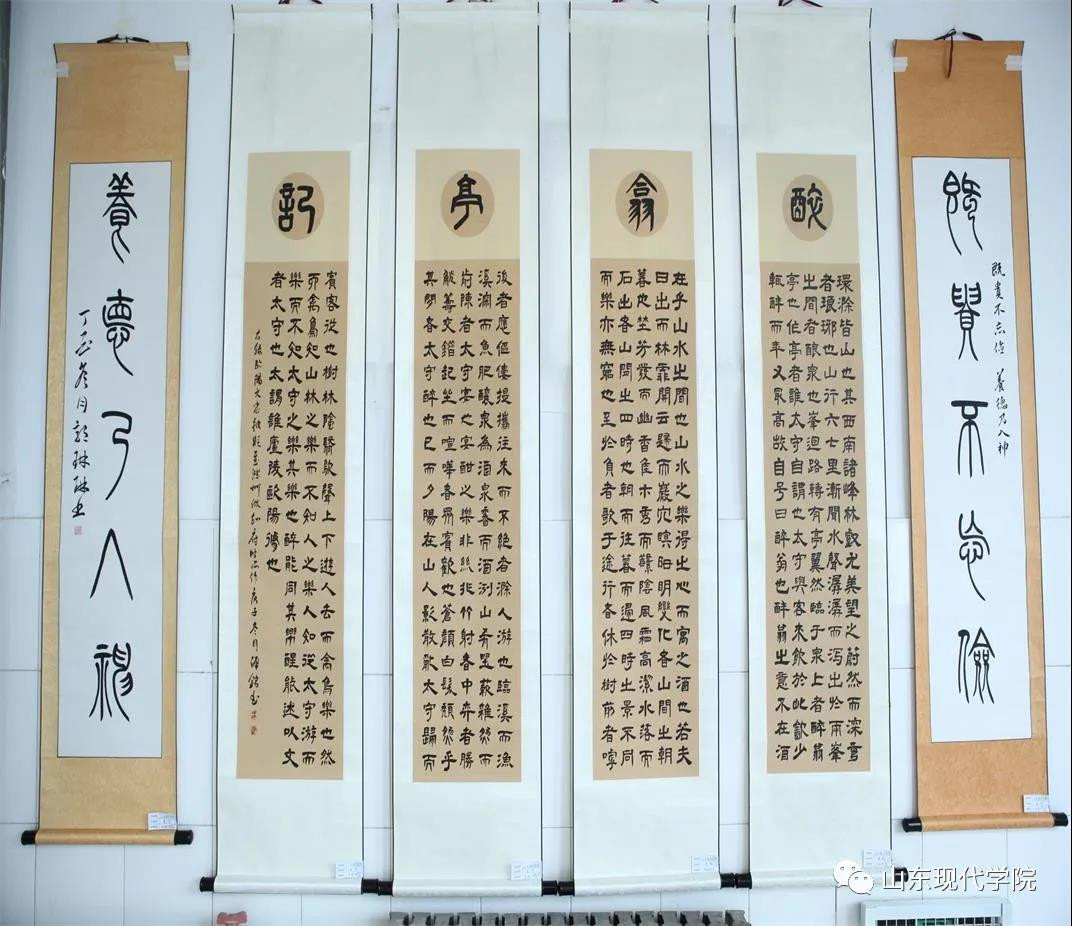 既貴不忘儉
既貴不忘儉 養德乃入神
醉
環滁皆山也其西南諸峰林壑尤美望之蔚然而深秀
者琅琊也山行六七里漸聞水聲潺潺而瀉出於兩峯
之間者釀泉也峯迴路轉有亭翼然臨于泉上者醉翁
亭也作亭者誰太守自謂也太守與客來飲於此飲少
輒醉而年又最高故自号曰醉翁也醉翁之意不在酒
翁
在乎山水之間也山水之樂得之心而寓之酒也若夫
日出而林霏開雲歸而巖穴暝晦明變化者山間之朝
暮也埜芳發而幽香佳木秀而蘩陰風霜高潔水落而
石出者山間之四時也朝而往暮而歸四時之景不同
而樂亦無窮也至於負者歌于途行者休於樹前者呼
亭
後者應傴僂提攜往來而不絕者滁人游也臨溪而漁
溪淵而魚肥釀泉為酒泉香而酒洌山肴埜蔌雜然而
前陳者太守宴也宴酣之樂非絲非竹射者中弈者勝
觥籌交錯起坐而喧嘩者眾賓歡也蒼顏白髮頹然乎
其間者太守醉也已而夕陽在山人影散亂太守歸而
記
賓客從也樹林陰翳鳴聲上下遊人去而禽鳥樂也然
而禽鳥知山林之樂而不知人之樂人知從太守游而
樂而不知太守之樂其樂也醉能同其樂醒能述以文
者太守也太謂誰廬陵歐陽脩也
右錄歐陽文忠被貶至滁州做知府時所作庚子冬月
養德乃入神
丁酉冬月郭琳琳書
山东现代学院